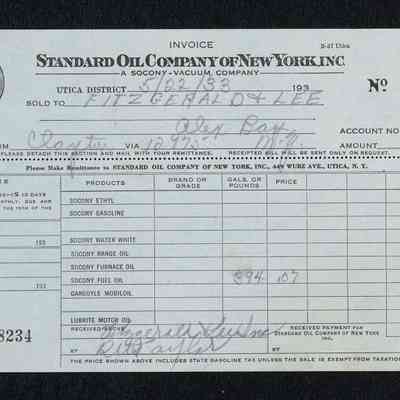 INVOICE
B-37 Utica
STANDARD OIL COMPANY OF NEW YORK, INC
A SOCONY-VACUUM COMPANY
UTICA DISTRICT 5/22/33 193
Nº
SOLD TO FITZGERALD & LEE
Alex Bay
ACCOUNT NO
OM Clayton VIA 12975 N.Y. AMOUNT
PLEASE DETACH THIS SECTION AND MAIL WITH YOUR REMITTANCE. RECEIPTED BILL WILL BE SENT ONLY ON REQUEST.
Please Make Remittance to STANDARD OIL COMPANY OF NEW YORK, INC., WURZ AVE., UTICA, N. Y.
PRODUCTS BRAND OR GRADE GALS. OR POUNDS PRICE
SOCONY ETHYL
SOCONY GASOLINE
193
SOCONY WATER WHITE
SOCONY RANGE OIL
SOCONY FURNACE OIL
SOCONY FUEL OIL 394 .07
GARGOYLE MOBILOIL
193
LUBRITE MOTOR OIL
8234
RECEIVED ABOVE Fitzgerald Lee Inc
RECEIVED PAYMENT FOR
STANDARD OIL COMPANY OF NEW YORK
INC.
BY R H Taylor BY
THE PRICE SHOWN ABOVE INCLUDES STATE GASOLINE TAX UNLESS THE SALE IS EXEMPT FROM TAXATION